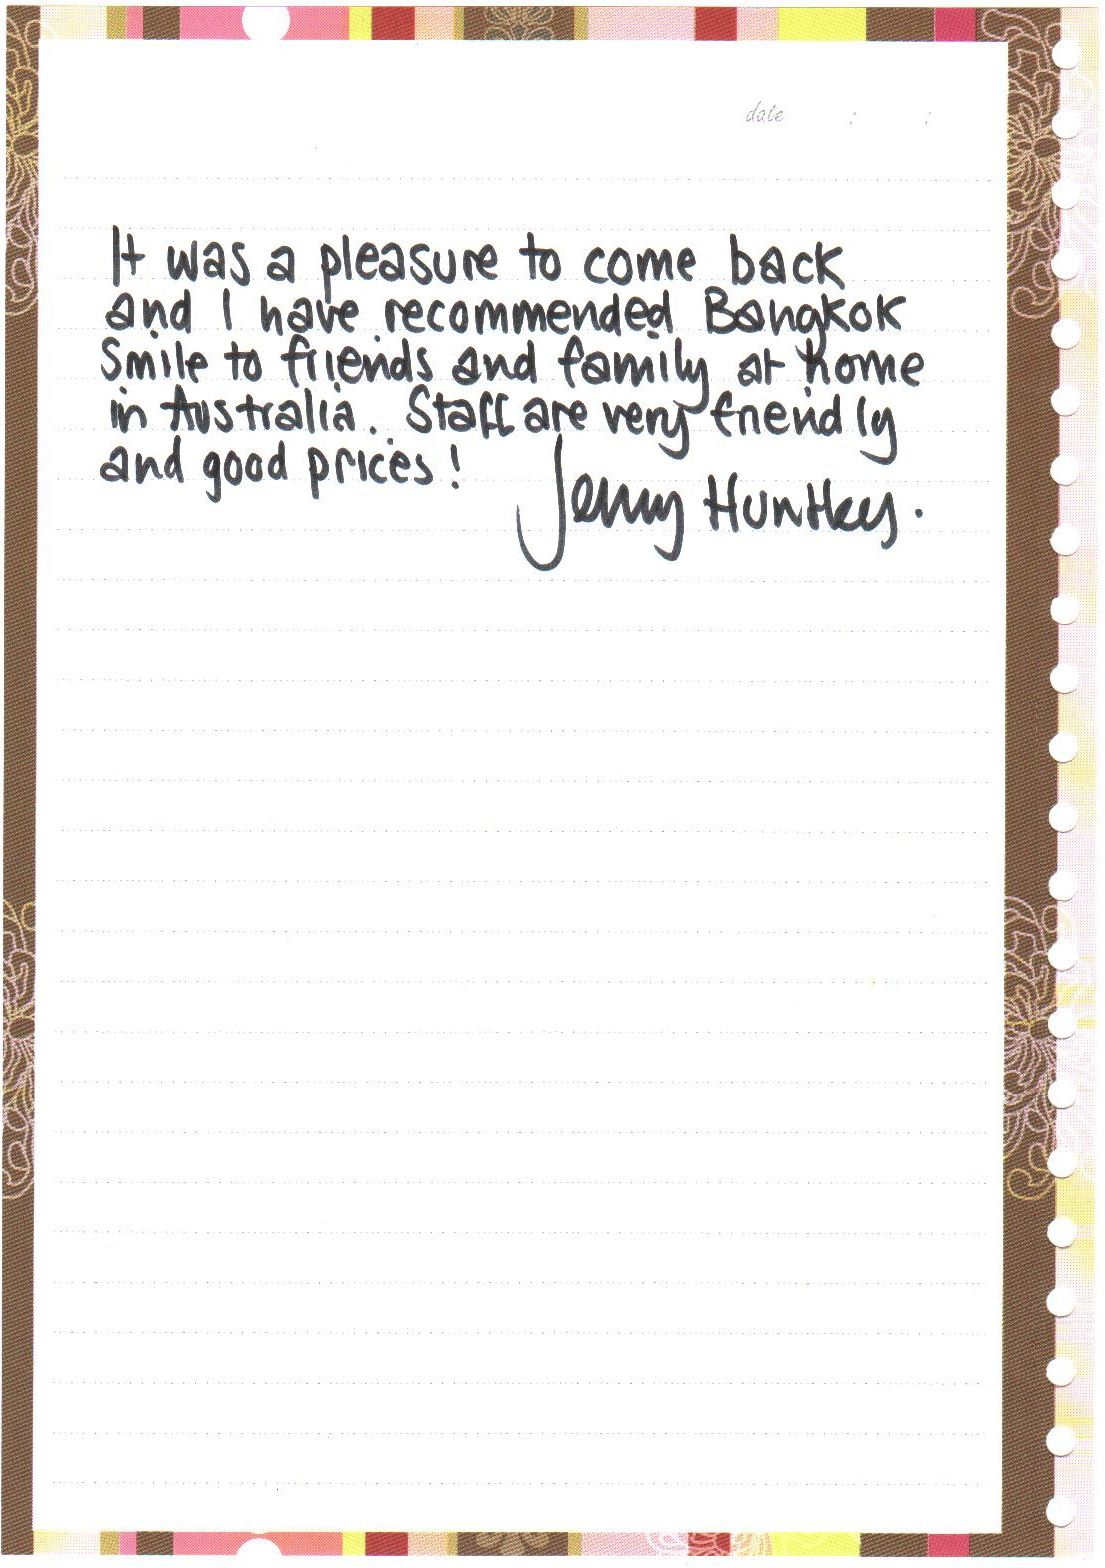 date : :
It was a pleasure to come back
and I have recommended Bangkok
Smile to friends and family at home
in Australia. Staff are very friendly
and good prices!
Jenny Huntley.